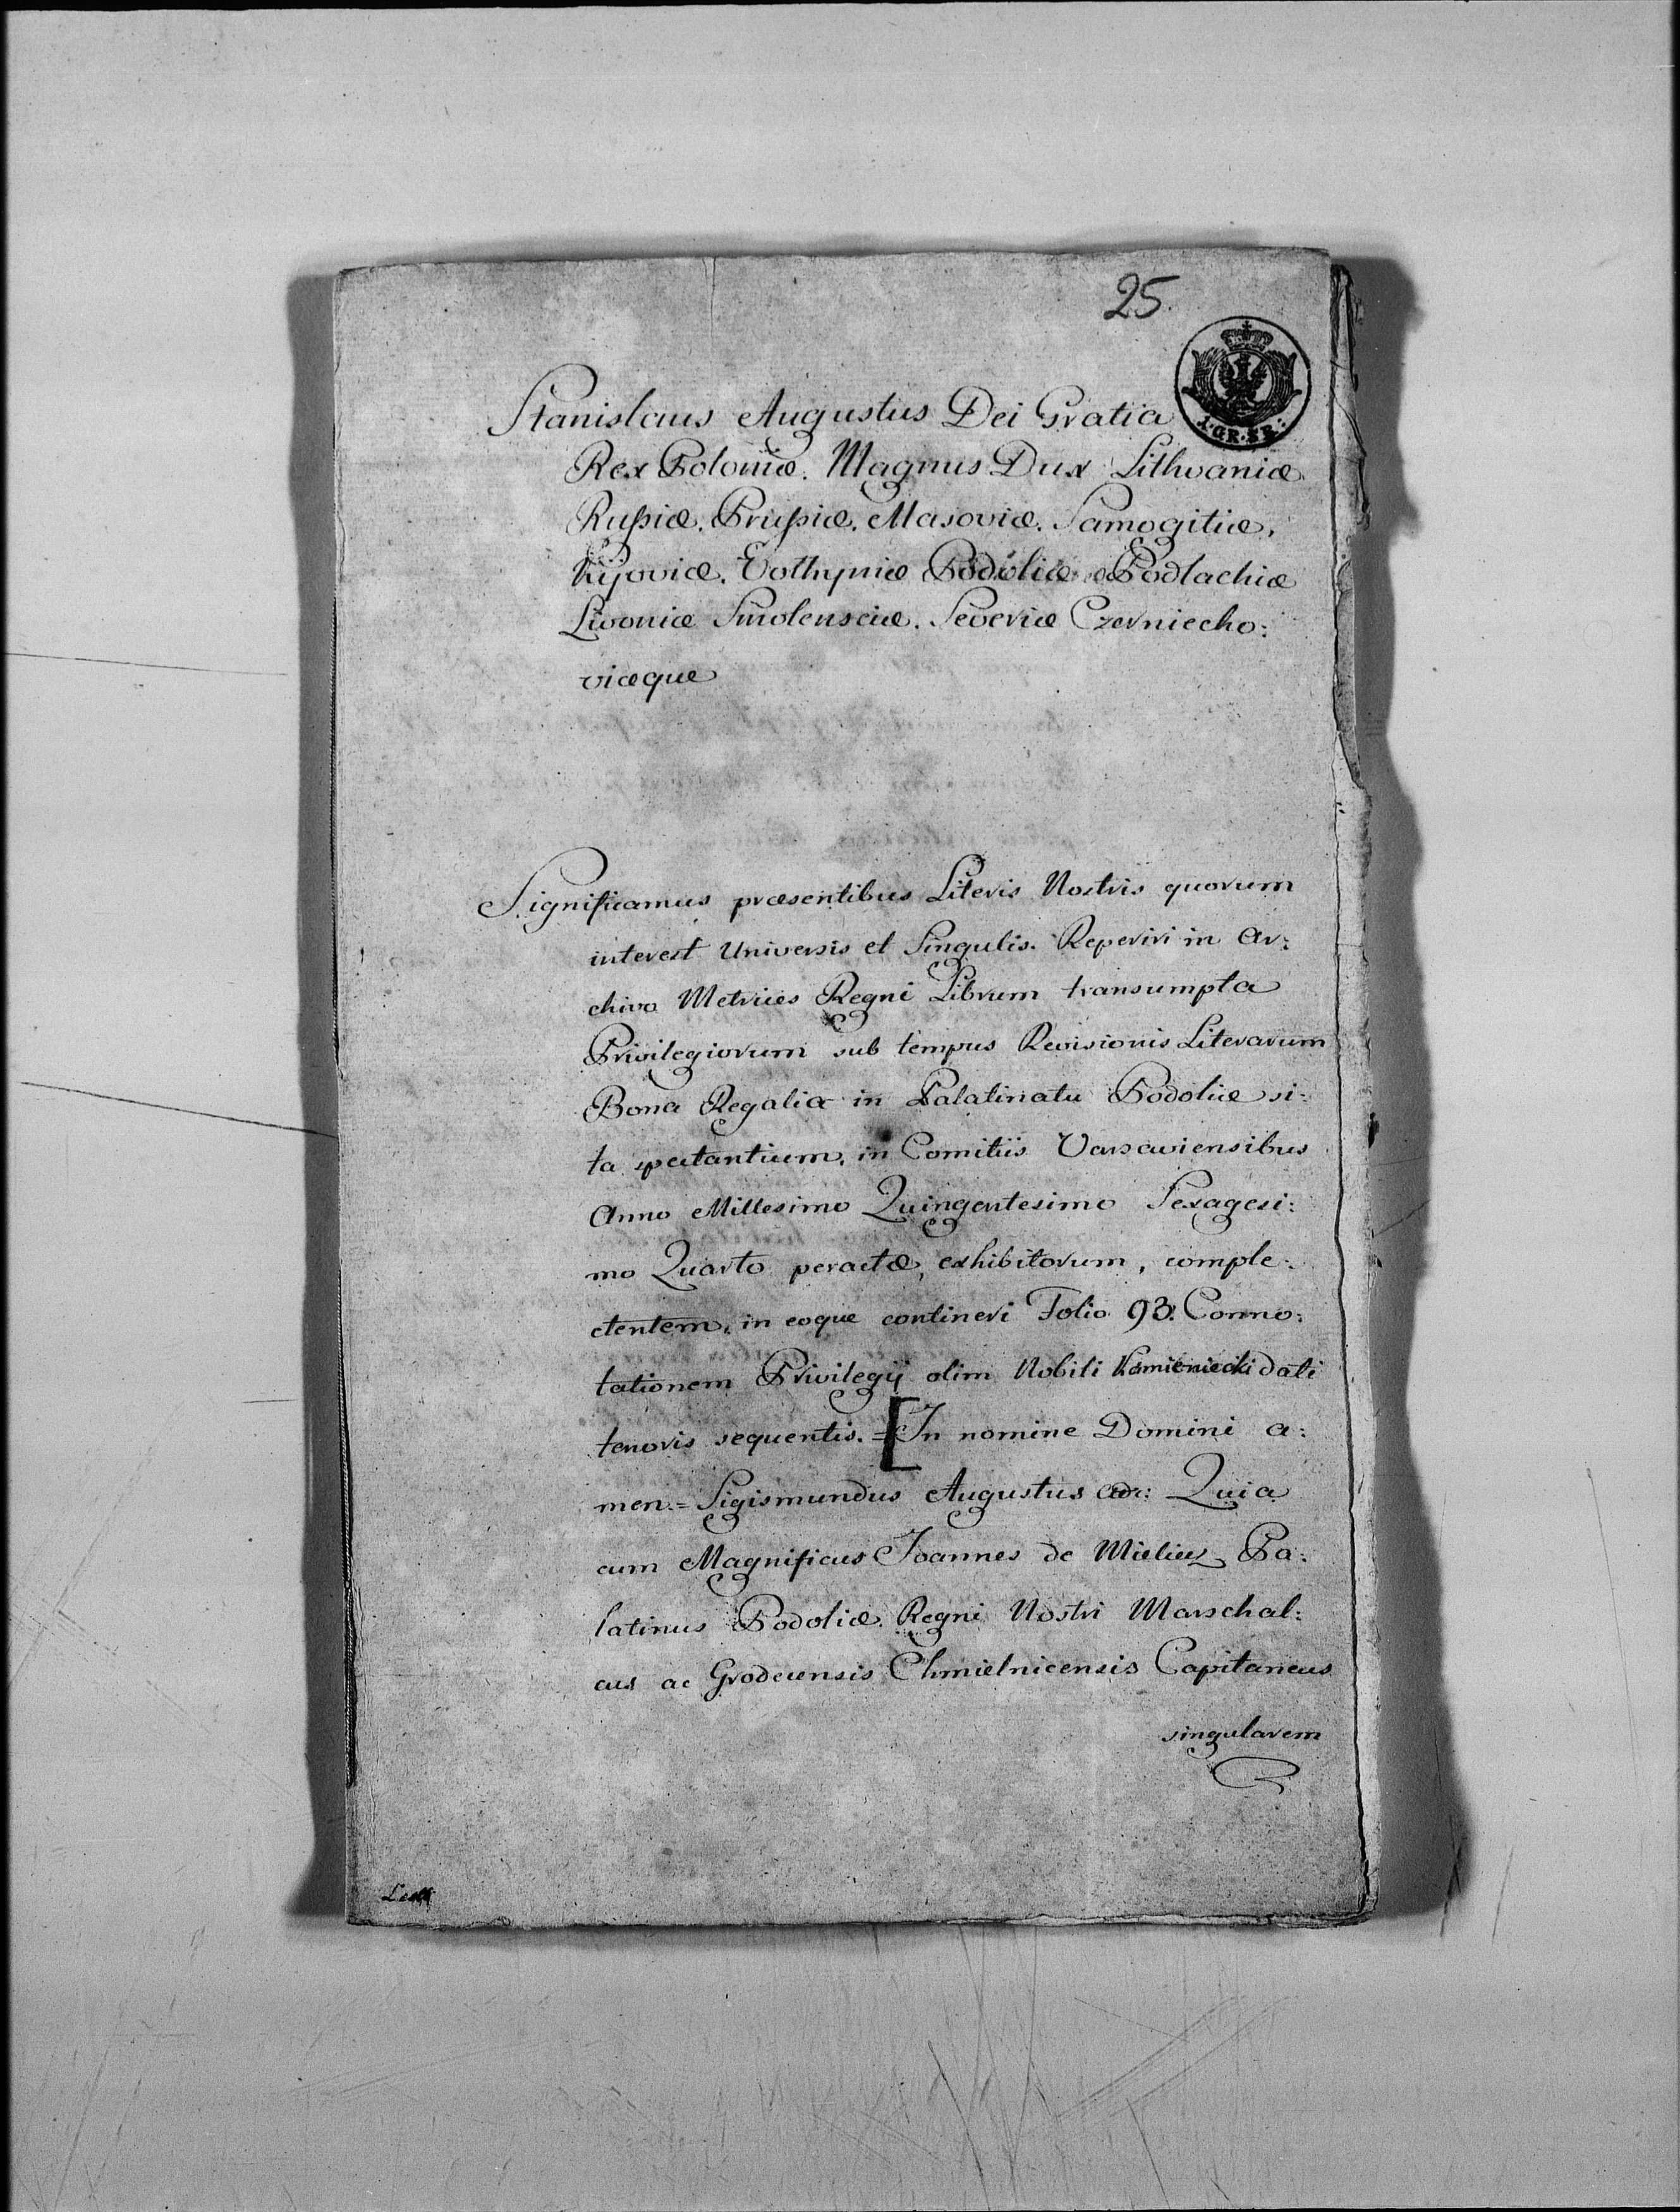 25.
1·GR·SR:
Stanislaus Augustus Dei Gratia
Rex Poloniæ. Magnus Dux Lithvaniæ
Rußiæ. Prußiæ. Masoviæ. Samogitiæ.
Kijoviæ. Volhyniæ Podoliæ Podlachiæ
Livoniæ Smolensciæ. Severiæ Czerniecho:
viæque
Significamus præsentibus Literis Nostris quorum
interest Universis et Singulis. Reperiri in Ar:
chivo Metrices Regni Librum transumpta
Privilegiorum sub tempus Revisionis Literarum
Bona Regalia in Palatinatu Podoliæ si:
ta spectantium, in Comitiis Varsaviensibus
Anno Millesimo Quingentesimo Sexagesi:
mo Quarto peractæ, exhibitorum, comple:
ctentem, in eoque contineri Folio 93. Conno:
tationem Privilegij olim Nobili Kamieniecki dati
tenoris sequentis. = [In nomine Domini a:
men. = Sigismundus Augustus &c: Quia
cum Magnificus Joannes de Mielecz Pa:
latinus Podoliæ. Regni Nostri Marschal:
cus ac Grodecensis Chmielnicensis Capitaneus
singularem